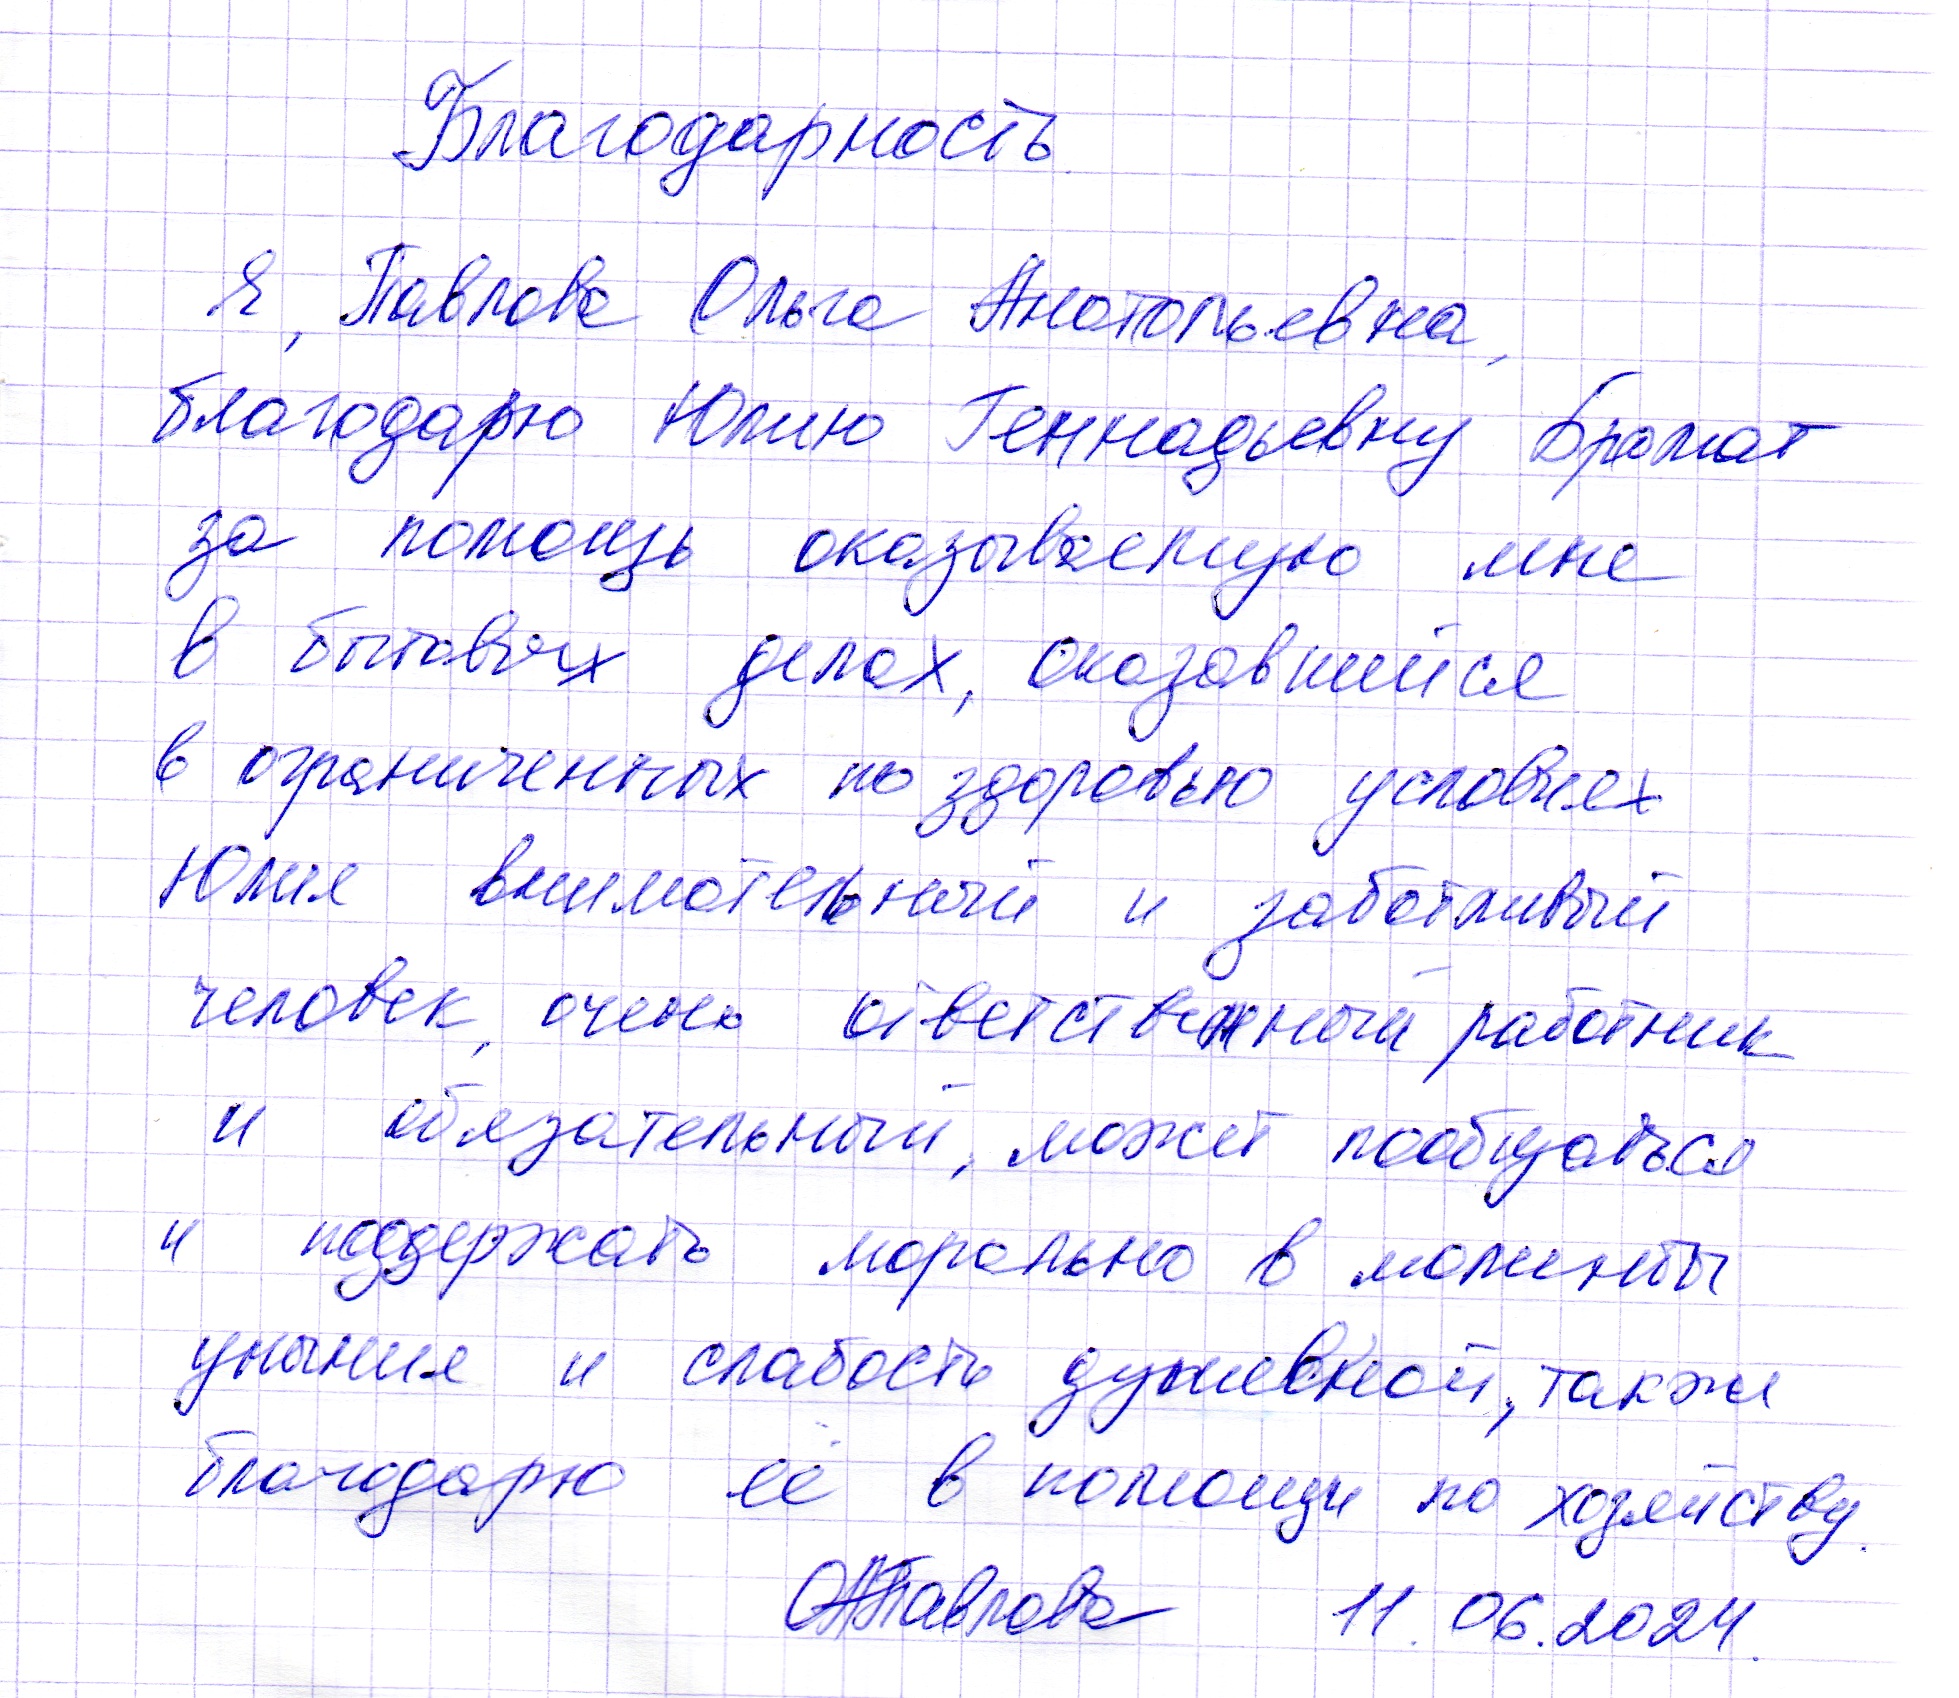 Благодарность
Я, Павлова Ольга Анатольевна,
благодарю Юлию Геннадьевну Бромат
за помощь оказываемую мне
в бытовых делах, оказавшийся
в ограниченных по здоровью условиях
Юлия внимательный и заботливый
человек, очень ответственный работник
и обязательный, может пообщаться
и поддержать морально в моменты
уныния и слабость душевной, также
благодарю её в помощи по хозяйству.
ОАПавлова 11.06.2024.